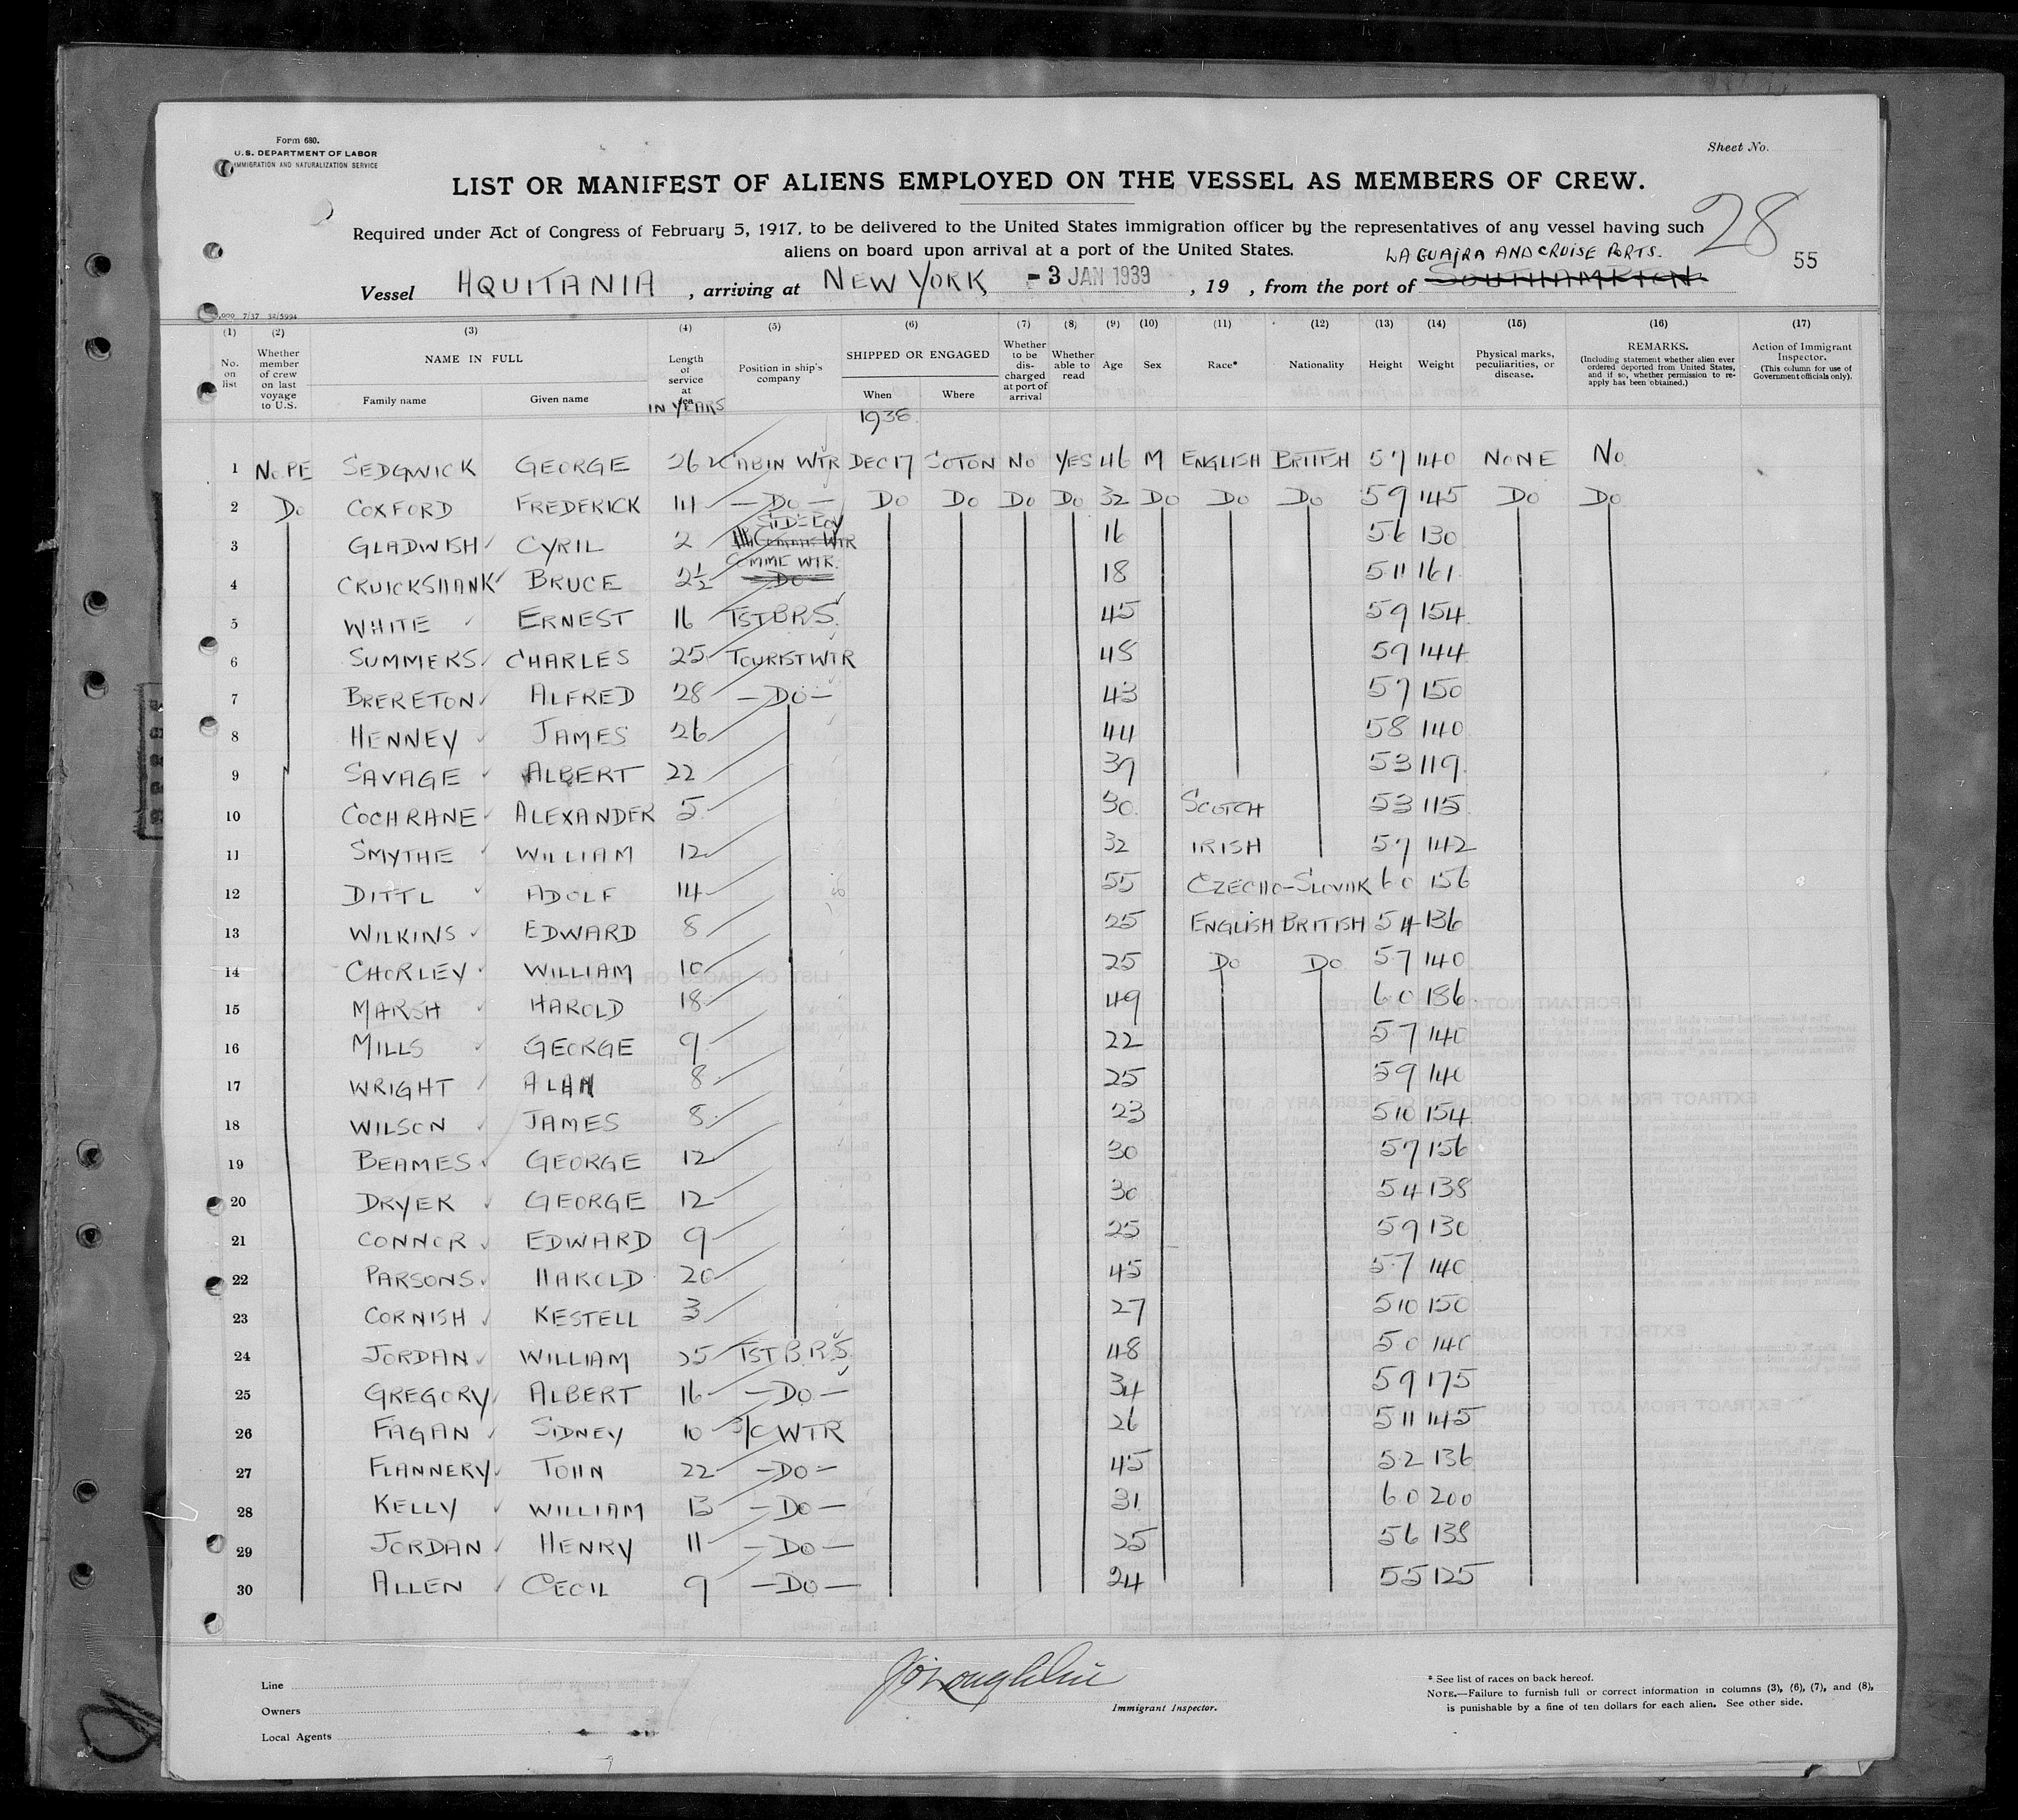 Form 680.
U.S. DEPARTMENT OF LABOR
IMMIGRATION AND NATURALIZATION SERVICE
Sheet No.
LIST OR MANIFEST OF ALIENS EMPLOYED ON THE VESSEL AS MEMBERS OF CREW.
28
Required under Act of Congress of February 5, 1917, to be delivered to the United States immigration officer by the representatives of any vessel having such
aliens on board upon arrival at a port of the United States.
LA GUAIRA AND CRUISE PORTS.
55
Vessel AQUITANIA, arriving at NEW YORK -3 JAN 1939, 19 , from the port of SOUTHAMPTON
7/37 32/5994
(1) (2) (3) (4) (5) (6) (7) (8) (9) (10) (11) (12) (13) (14) (15) (16) (17)
No. on list
Whether member of crew on last voyage to U.S.
NAME IN FULL
Family name Given name
Length of service at sea
IN YEARS
Position in ship's company
SHIPPED OR ENGAGED
When Where
1938
Whether to be discharged at port of arrival
Whether able to read
Age Sex Race* Nationality Height Weight
Physical marks, peculiarities, or disease.
REMARKS.
(Including statement whether alien ever ordered deported from United States, and if so, whether permission to reapply has been obtained.)
Action of Immigrant Inspector.
(This column for use of Government officials only).
1 NOPE SEDGWICK GEORGE 26 CABIN WTR DEC 17 SOTON NO YES 46 M ENGLISH BRITISH 5 7 140 NONE NO
2 DO COXFORD FREDERICK 14 - DO - DO DO DO DO 32 DO DO DO 5 9 145 DO DO
3 GLADWISH CYRIL 2 16 5 6 130
4 CRUICKSHANK BRUCE 2½ COMME WTR. DO 18 5 11 161
5 WHITE ERNEST 16 TST B.R.S. 45 5 9 154
6 SUMMERS CHARLES 25 TOURIST WTR 48 5 9 144
7 BRERETON ALFRED 28 - DO - 43 5 7 150
8 HENNEY JAMES 26 44 5 8 140
9 SAVAGE ALBERT 22 39 5 3 119
10 COCHRANE ALEXANDER 5 30 SCOTCH 5 3 115
11 SMYTHE WILLIAM 12 32 IRISH 5 7 142
12 DITTL ADOLF 14 55 CZECHO-SLOVAK 6 0 156
13 WILKINS EDWARD 8 25 ENGLISH BRITISH 5 4 136
14 CHORLEY WILLIAM 10 25 DO DO 5 7 140
15 MARSH HAROLD 18 49 6 0 186
16 MILLS GEORGE 9 22 5 7 140
17 WRIGHT ALAN 8 25 5 9 140
18 WILSON JAMES 8 23 5 10 154
19 BEAMES GEORGE 12 30 5 7 156
20 DRYER GEORGE 12 30 5 4 138
21 CONNOR EDWARD 9 25 5 9 130
22 PARSONS HAROLD 20 45 5 7 140
23 CORNISH KESTELL 3 27 5 10 150
24 JORDAN WILLIAM 25 TST B.R.S. 48 5 0 140
25 GREGORY ALBERT 16 - DO - 34 5 9 175
26 FAGAN SIDNEY 10 3/C WTR 26 5 11 145
27 FLANNERY JOHN 22 - DO - 45 5 2 136
28 KELLY WILLIAM 13 - DO - 31 6 0 200
29 JORDAN HENRY 11 - DO - 25 5 6 138
30 ALLEN CECIL 9 - DO - 24 5 5 125
Line
Owners
Local Agents
Immigrant Inspector.
* See list of races on back hereof.
NOTE.—Failure to furnish full or correct information in columns (3), (6), (7), and (8),
is punishable by a fine of ten dollars for each alien. See other side.